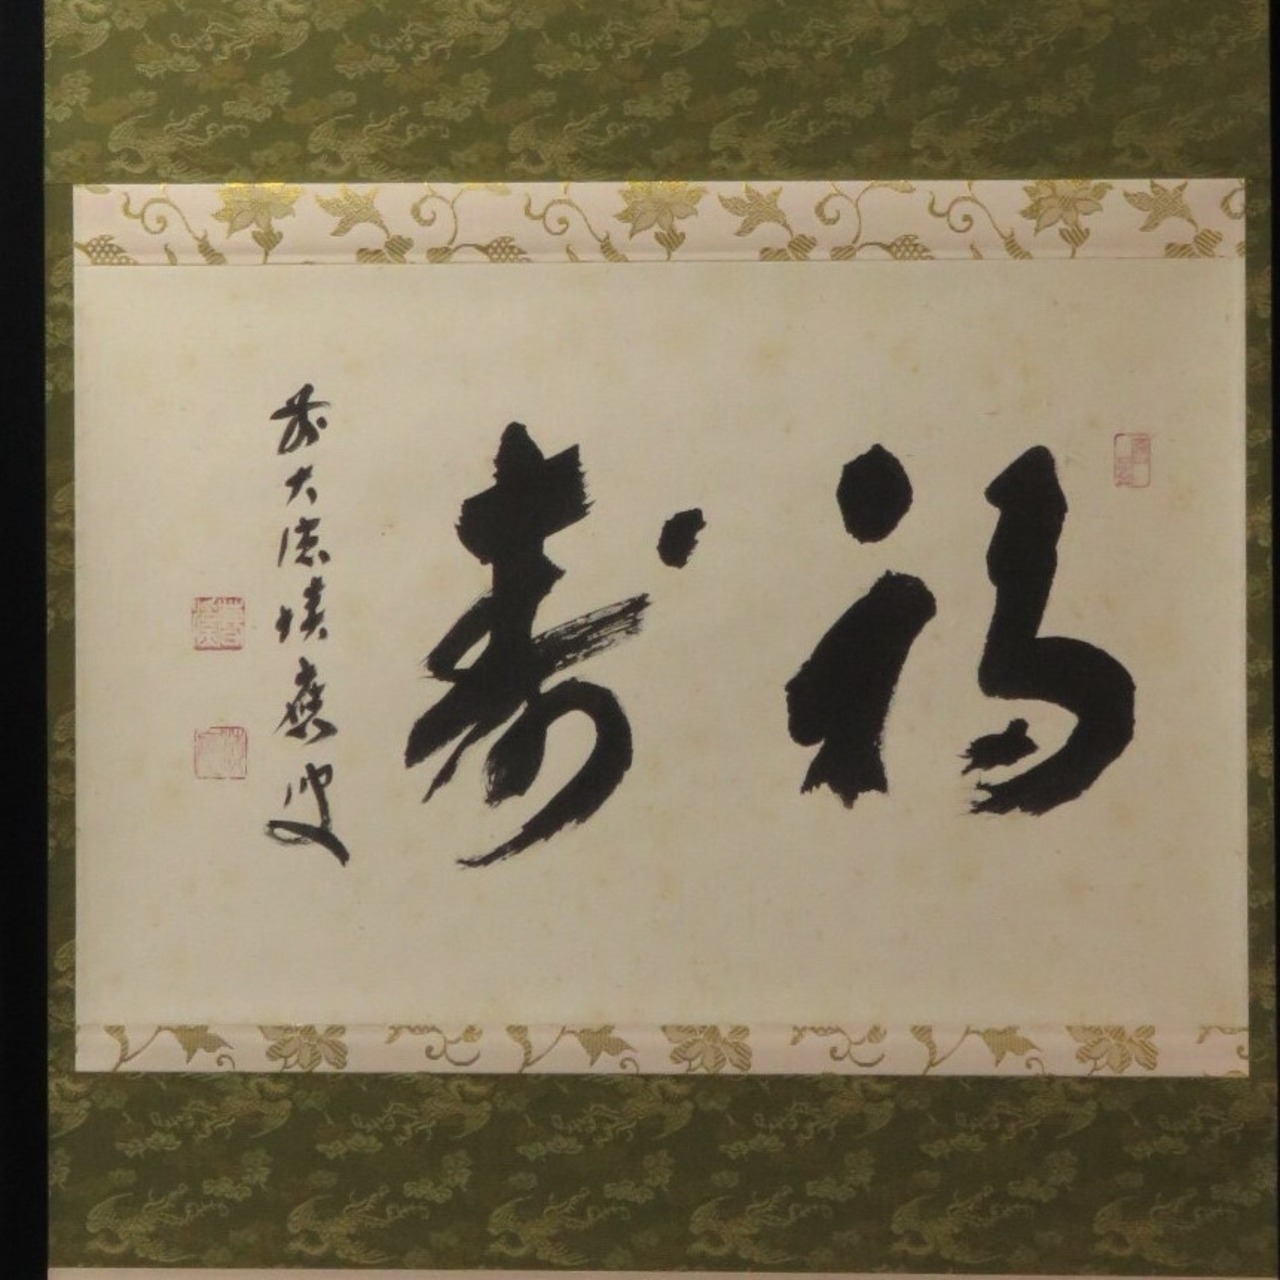 福寿
前大徳積應叟